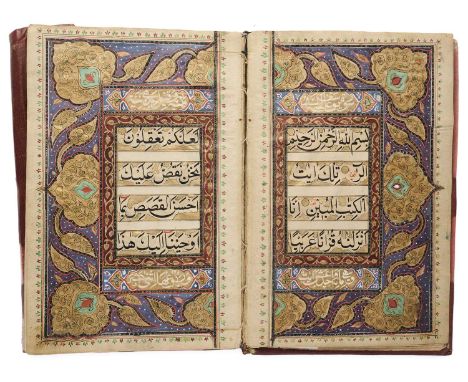 بسم الله الرحمن الرحيم
الر تلك ايت
الكتب المبين انا
انزلنه قرانا عربيا
لعلكم تعقلون
نحن نقص عليك
احسن القصص بما
اوحينا اليك هذا